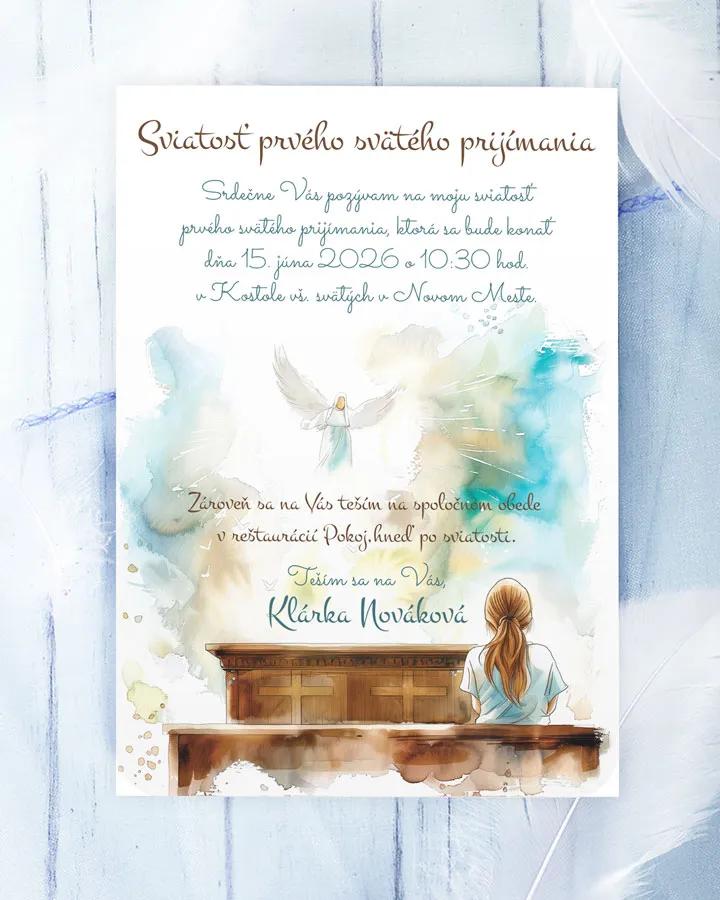 Sviatosť prvého svätého prijímania
Srdečne Vás pozývam na moju sviatosť
prvého svätého prijímania, ktorá sa bude konať
dňa 15. júna 2026 o 10:30 hod.
v Kostole vš. svätých v Novom Meste.
Zároveň sa na Vás teším na spoločnom obede
v reštaurácií Pokoj.hneď po sviatosti.
Teším sa na Vás,
Klárka Nováková